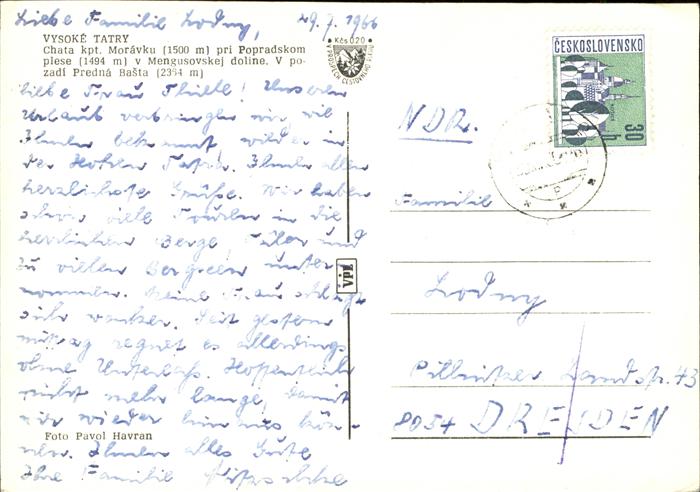 Liebe Familie Lodny, 29.7.1966
VYSOKÉ TATRY
Chata kpt. Morávku (1500 m) pri Popradskom
plese (1494 m) v Mengusovskej doline. V po-
zadí Predná Bašta (2364 m)
Kčs 0.20
ČESKOSLOVENSKO
30 h
liebe Frau Thiele! Unseren
Urlaub verbringen wir, wie
Ihnen bekannt, wieder in
der Hohen Tatra. Ihnen allen
herzlichste Grüße. Wir haben
schon viele Touren in die
herrlichen Berge, Täler und
zu vielen Bergseen unter-
nommen. Meine Frau schlägt
sich wacker. Seit gestern
mittag regnet es allerdings
ohne Unterlaß. Hoffentlich
nicht mehr lange, damit
wir wieder hinaus kön-
nen. Ihnen alles Gute
Ihre Familie
Foto Pavol Havran
VPL
NDR.
Familie
Lodny
Pillnitzer Landstr. 43
8054 DRESDEN